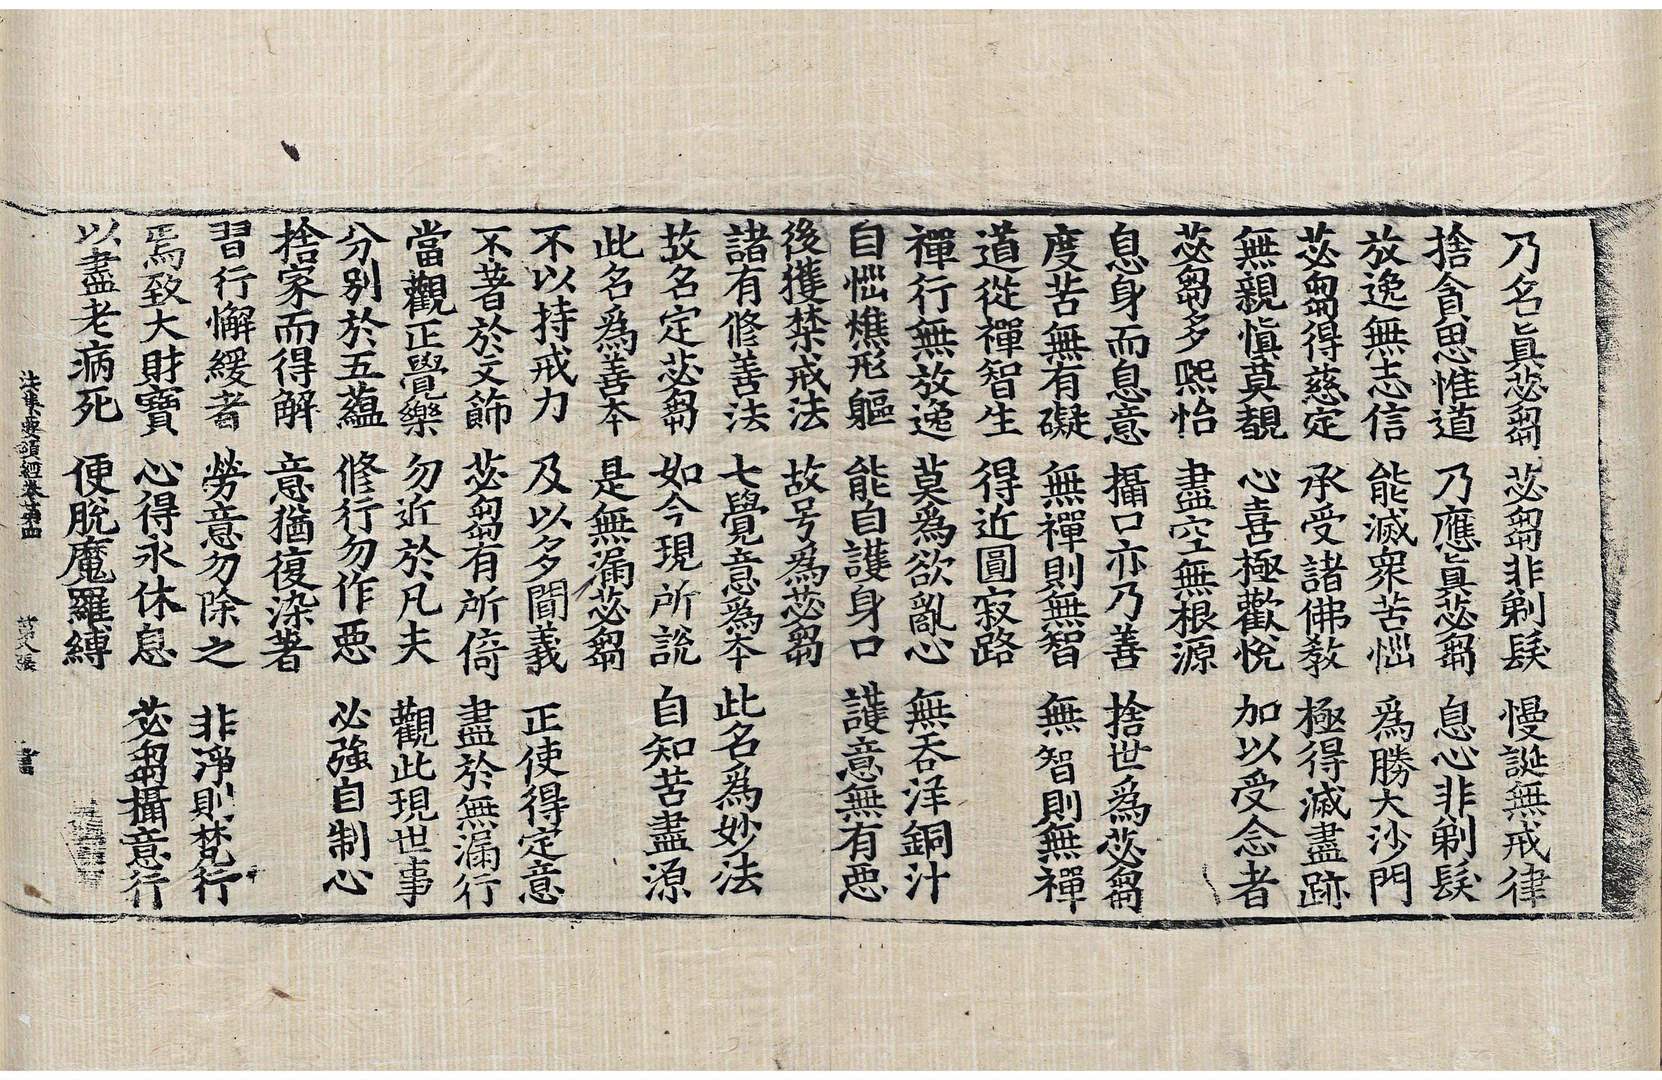 乃名眞苾蒭　苾蒭非剃髮　慢誕無戒律
捨貪思惟道　乃應眞苾蒭　息心非剃髮
放逸無志信　能滅衆苦惱　爲勝大沙門
苾蒭得慈定　承受諸佛教　極得滅盡跡
無親愼莫覩　心喜極歡悅　加以受念者
苾蒭多熙怡　盡空無根源
息身而息意　攝口亦乃善　捨世爲苾蒭
度苦無有礙　無禪則無智　無智則無禪
道從禪智生　得近圓寂路
禪行無放逸　莫爲欲亂心　無吞洋銅汁
自惱燋形軀　能自護身口　護意無有惡
後獲禁戒法　故号爲苾蒭
諸有修善法　七覺意爲本　此名爲妙法
故名定苾蒭　如今現所說　自知苦盡源
此名爲善本　是無漏苾蒭
不以持戒力　及以多聞義　正使得定意
不著於文飾　苾蒭有所倚　盡於無漏行
當觀正覺樂　勿近於凡夫　觀此現世事
分別於五蘊　修行勿作惡　必強自制心
捨家而得解　意猶復染著
習行懈緩者　勞意勿除之　非淨則梵行
焉致大財寶　心得永休息　苾蒭攝意行
以盡老病死　便脫魔羅縛
法集要頌經卷第四　第八張　書